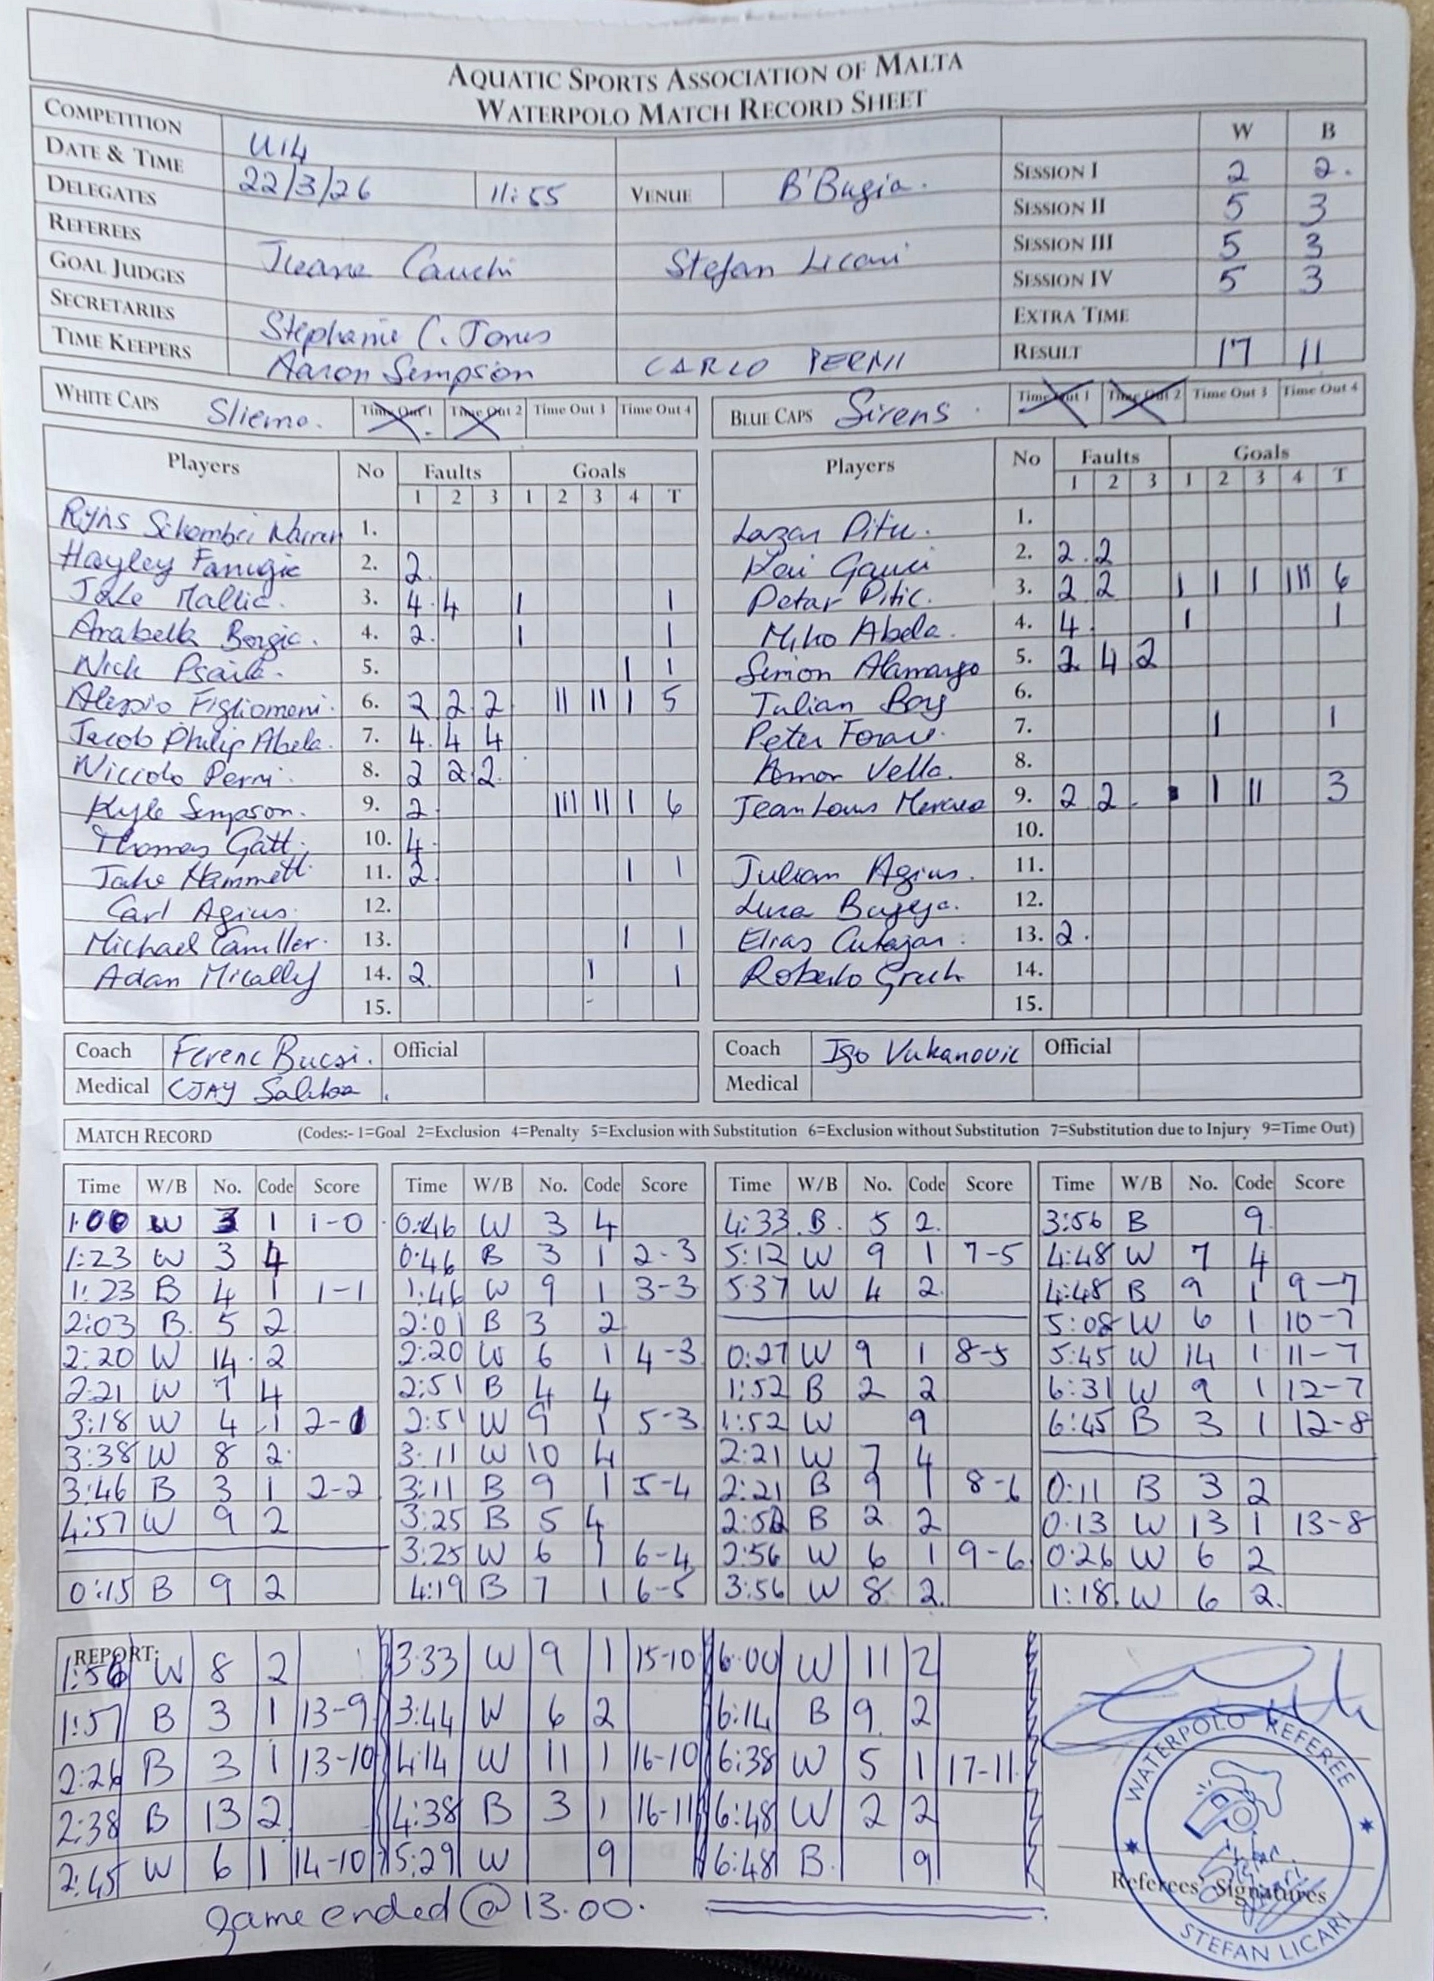 AQUATIC SPORTS ASSOCIATION OF MALTA
WATERPOLO MATCH RECORD SHEET
COMPETITION U14 W B
DATE & TIME 22/3/26 11:55 VENUE B'Bugia. SESSION I 2 2.
DELEGATES SESSION II 5 3
REFEREES Cauchi Stefan Licari SESSION III 5 3
GOAL JUDGES SESSION IV 5 3
SECRETARIES Stephanie C. Jones EXTRA TIME
TIME KEEPERS Aaron Sempson CARLO PERNI RESULT 17 11
WHITE CAPS Sliema. Time Out 1 Time Out 2 Time Out 3 Time Out 4
BLUE CAPS Sirens Time Out 1 Time Out 2 Time Out 3 Time Out 4
Players No Faults Goals
1 2 3 1 2 3 4 T
Schembri 1.
Hayley 2. 2.
Jake 3. 4. 4 1 1
Arabella 4. 2. 1 1
Nick Psaila. 5. 1 1
Alessio Figliomeni. 6. 2 2 2 11 11 1 5
Jacob Philip Abela. 7. 4. 4 4
Niccolo Perni. 8. 2 2 2.
Kyle Sempson. 9. 2. 111 11 1 6
Thomas Gatt. 10. 4.
Jake Hammett. 11. 2. 1 1
Carl Agius. 12.
Michael 13. 1 1
Adam Micallef 14. 2. 1 1
15.
Players No Faults Goals
1 2 3 1 2 3 4 T
Lazar Pitic. 1.
Kai Gauci 2. 2. 2
Petar Pitic. 3. 2 2 1 1 1 111 6
Miko Abela. 4. 4. 1 1
Simon Alamango 5. 2 4 2
Julian Borg 6.
Peter 7. 1 1
Vella. 8.
Jean Louis 9. 2 2 1 11 3
10.
Julian Agius. 11.
Luca Bajeja. 12.
Elias Cutajar. 13. 2.
Roberto Grech 14.
15.
Coach Ferenc Bucsi. Official
Medical CJAY Saliba
Coach Igo Vukanovic Official
Medical
MATCH RECORD (Codes:- 1=Goal 2=Exclusion 4=Penalty 5=Exclusion with Substitution 6=Exclusion without Substitution 7=Substitution due to Injury 9=Time Out)
Time W/B No. Code Score
1:00 W 3 1 1-0
1:23 W 3 4
1:23 B 4 1 1-1
2:03 B. 5 2
2:20 W 14. 2
2:21 W 7 4
3:18 W 4 1 2-1
3:38 W 8 2.
3:46 B 3 1 2-2
4:57 W 9 2
0:15 B 9 2
Time W/B No. Code Score
0:46 W 3 4
0:46 B 3 1 2-3
1:46 W 9 1 3-3
2:01 B 3 2
2:20 W 6 1 4-3
2:51 B 4 4
2:51 W 9 1 5-3
3:11 W 10 4
3:11 B 9 1 5-4
3:25 B 5 4
3:25 W 6 1 6-4
4:19 B 7 1 6-5
Time W/B No. Code Score
4:33 B. 5 2.
5:12 W 9 1 7-5
5:37 W 4 2.
0:27 W 9 1 8-5
1:52 B 2 2
1:52 W 9
2:21 W 7 4
2:21 B 9 1 8-6
2:52 B 2 2
2:56 W 6 1 9-6
3:56 W 8 2.
Time W/B No. Code Score
3:56 B 9.
4:48 W 7 4
4:48 B 9 1 9-7
5:08 W 6 1 10-7
5:45 W 14 1 11-7
6:31 W 9 1 12-7
6:45 B 3 1 12-8
0:11 B 3 2
0:13 W 13 1 13-8
0:26 W 6 2
1:18 W 6 2.
REPORT:
1:56 W 8 2
1:57 B 3 1 13-9
2:26 B 3 1 13-10
2:38 B 13 2
2:45 W 6 1 14-10
3:33 W 9 1 15-10
3:44 W 6 2
4:14 W 11 1 16-10
4:38 B 3 1 16-11
5:29 W 9
6:00 W 11 2
6:14 B 9. 2
6:38 W 5 1 17-11
6:48 W 2 2
6:48 B. 9
WATERPOLO REFEREE
Referees' Signatures
STEFAN LICARI
game ended @ 13.00.